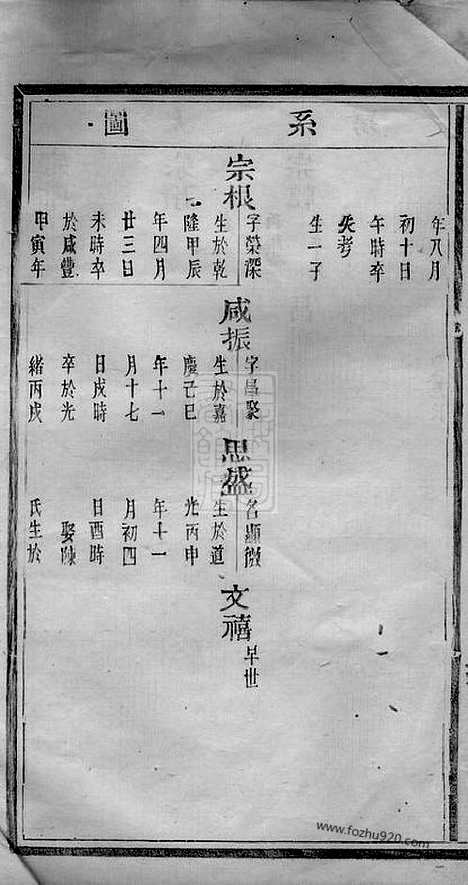 系圖
年八月
初十日
午時卒
失考
生一子
宗根
字榮深
生於乾
隆甲辰
年四月
廿三日
未時卒
於咸豐
甲寅年
咸振
字昌聚
生於嘉
慶己巳
年十一
月十七
日戌時
卒於光
緒丙戌
思盛
名顯微
生於道
光丙申
年十一
月初四
日酉時
娶陳
氏生於
文禧
早世
www.fozhu920.com